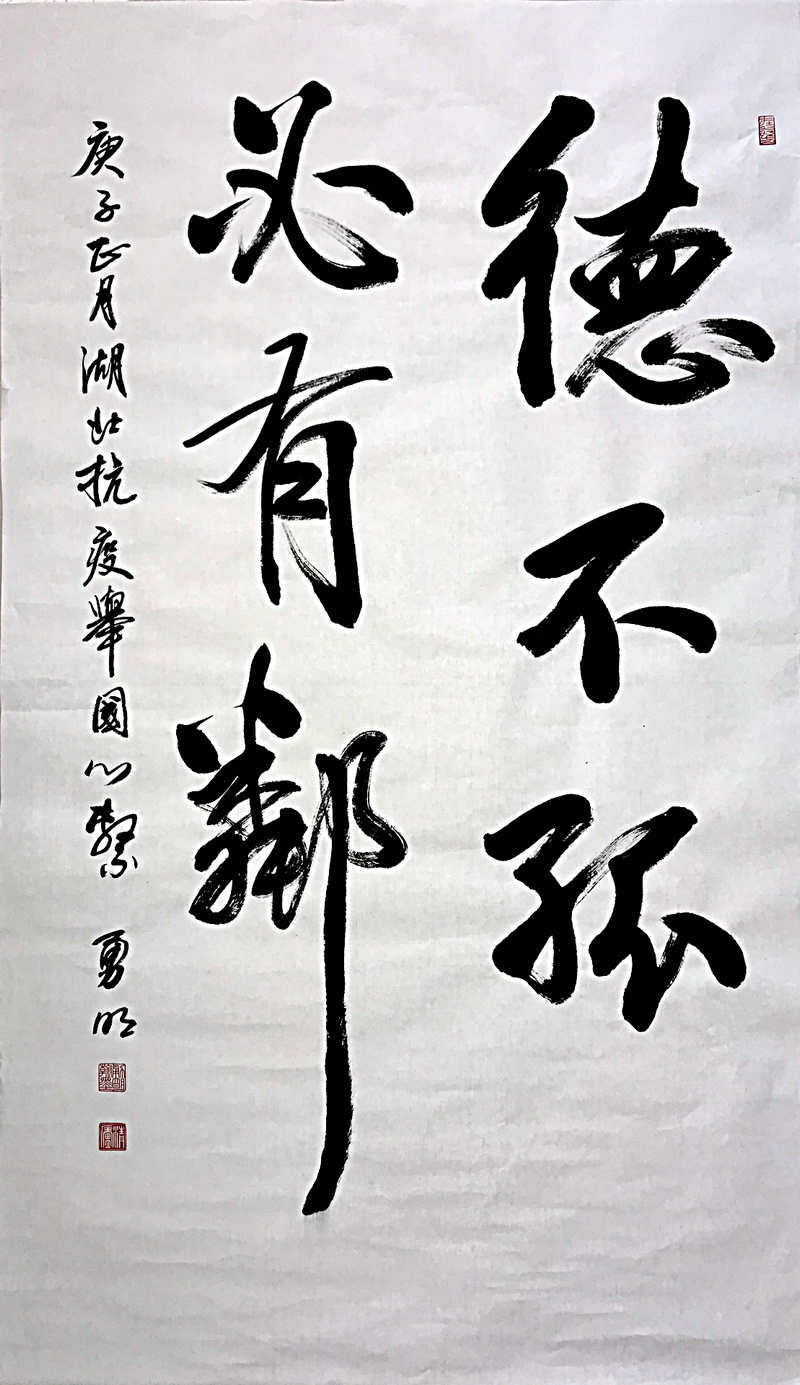 德不孤
必有鄰
庚子正月湖北抗疫舉國心繫 勇明